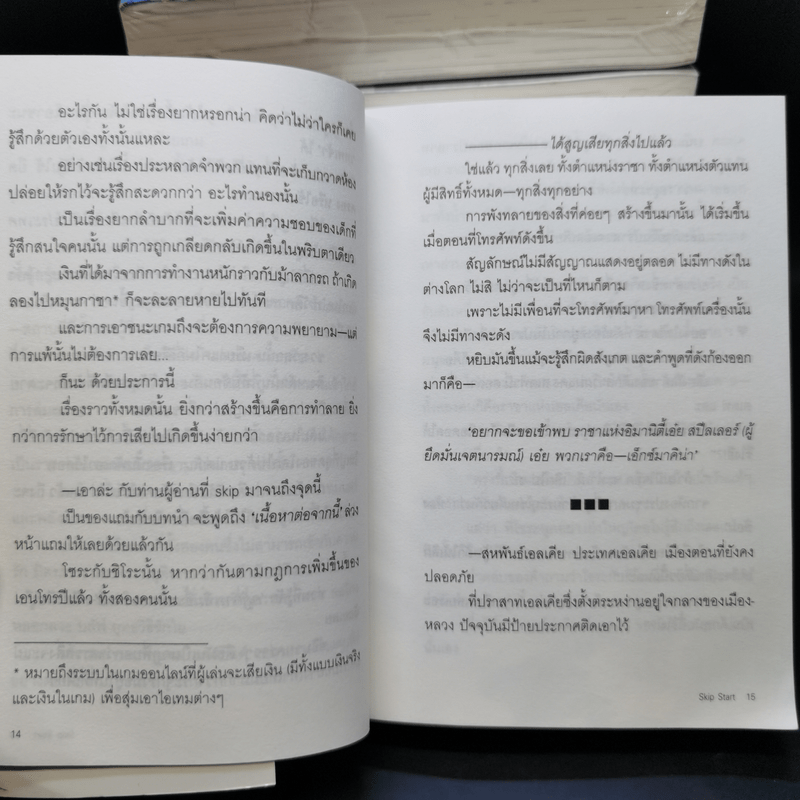 อะไรกัน ไม่ใช่เรื่องยากหรอกน่า คิดว่าไม่ว่าใครก็เคย
รู้สึกด้วยตัวเองทั้งนั้นแหละ
อย่างเช่นเรื่องประหลาดจำพวก แทนที่จะเก็บกวาดห้อง
ปล่อยให้รกไว้จะรู้สึกสะดวกกว่า อะไรทำนองนั้น
เป็นเรื่องยากลำบากที่จะเพิ่มค่าความชอบของเด็กที่
รู้สึกสนใจคนนั้น แต่การถูกเกลียดกลับเกิดขึ้นในพริบตาเดียว
เงินที่ได้มาจากการทำงานหนักราวกับม้าลากรถ ถ้าเกิด
ลองไปหมุนกาชา* ก็จะละลายหายไปทันที
และการเอาชนะเกมถึงจะต้องการความพยายาม—แต่
การแพ้นั้นไม่ต้องการเลย...
ก็นะ ด้วยประการนี้
เรื่องราวทั้งหมดนั้น ยิ่งกว่าสร้างขึ้นคือการทำลาย ยิ่ง
กว่าการรักษาไว้การเสียไปเกิดขึ้นง่ายกว่า
—เอาล่ะ กับท่านผู้อ่านที่ skip มาจนถึงจุดนี้
เป็นของแถมกับบทนำ จะพูดถึง 'เนื้อหาต่อจากนี้' ล่วง
หน้าแถมให้เลยด้วยแล้วกัน
โซระกับชิโระนั้น หากว่ากันตามกฎการเพิ่มขึ้นของ
เอนโทรปีแล้ว ทั้งสองคนนั้น
* หมายถึงระบบในเกมออนไลน์ที่ผู้เล่นจะเสียเงิน (มีทั้งแบบเงินจริง
และเงินในเกม) เพื่อสุ่มเอาไอเทมต่างๆ
14
———————ได้สูญเสียทุกสิ่งไปแล้ว
ใช่แล้ว ทุกสิ่งเลย ทั้งตำแหน่งราชา ทั้งตำแหน่งตัวแทน
ผู้มีสิทธิ์ทั้งหมด—ทุกสิ่งทุกอย่าง
การพังทลายของสิ่งที่ค่อยๆ สร้างขึ้นมานั้น ได้เริ่มขึ้น
เมื่อตอนที่โทรศัพท์ดังขึ้น
สัญลักษณ์ไม่มีสัญญาณแสดงอยู่ตลอด ไม่มีทางดังใน
ต่างโลก ไม่สิ ไม่ว่าจะเป็นที่ไหนก็ตาม
เพราะไม่มีเพื่อนที่จะโทรศัพท์มาหา โทรศัพท์เครื่องนั้น
จึงไม่มีทางจะดัง
หยิบมันขึ้นแม้จะรู้สึกผิดสังเกต และคำพูดที่ดังก้องออก
มาก็คือ—
'อยากจะขอเข้าพบ ราชาแห่งอิมานิตี้เอ๋ย สปีลเลอร์ (ผู้
ยึดมั่นเจตนารมณ์) เอ๋ย พวกเราคือ—เอ็กซ์มาคิน่า'
■■■
—สหพันธ์เอลเคีย ประเทศเอลเคีย เมืองตอนที่ยังคง
ปลอดภัย
ที่ปราสาทเอลเคียซึ่งตั้งตระหง่านอยู่ใจกลางของเมือง-
หลวง ปัจจุบันมีป้ายประกาศติดเอาไว้
Skip Start 15